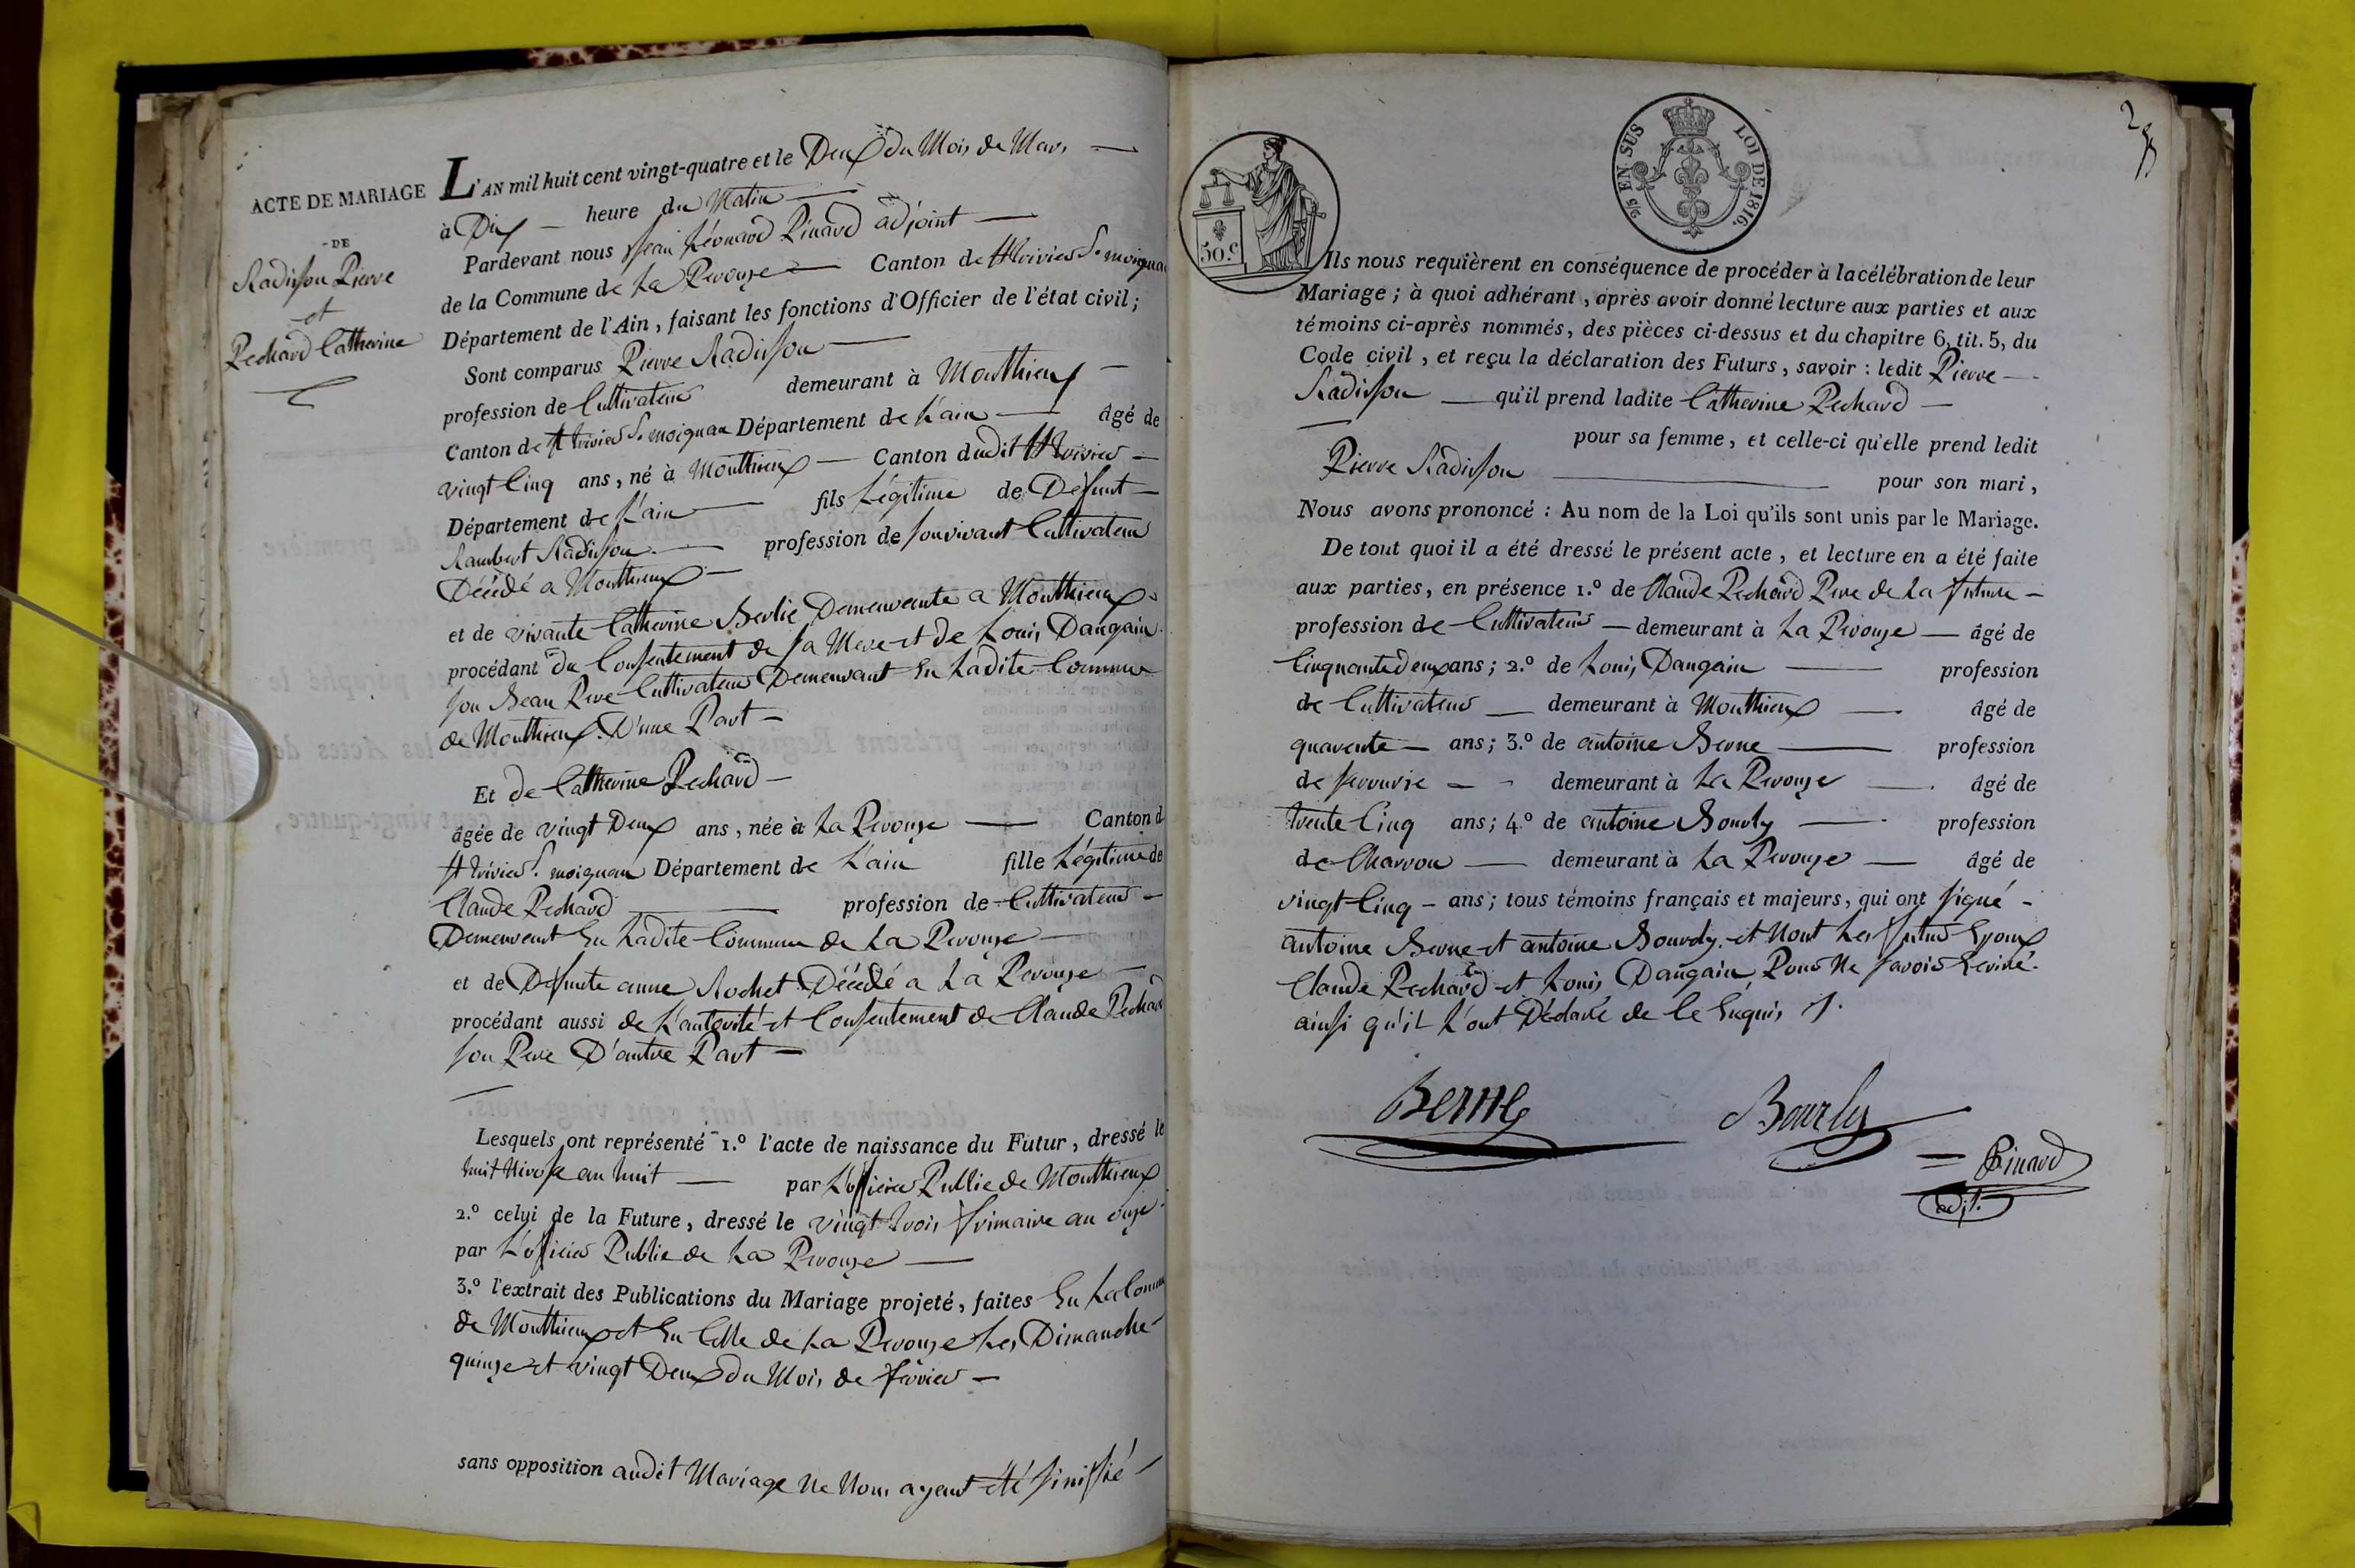 ACTE DE MARIAGE
-DE
Radisson Pierre
et
Pechard Catherine
L'AN mil huit cent vingt-quatre et le Deux du Mois de Mars
à Dix heure du Matin
Pardevant nous Jean Léonard Pinard adjoint
de la Commune de La Perouze Canton de St trivier S. moignan
Département de l'Ain, faisant les fonctions d'Officier de l'état civil;
Sont comparus Pierre Radisson
profession de Cultivateur demeurant à Monthieux
Canton de St trivier S. moignan Département de L'ain âgé de
vingt Cinq ans, né à Monthieux Canton dudit St trivier
Département de L'ain fils Légitime de Défunt
Rambert Radisson profession de son vivant Cultivateur
Décédé a Monthieux
et de vivante Catherine Berlie Demeurante a Monthieux
procédant du Consentement de sa Mere et de Louis Dangain
son Beau Pere Cultivateur Demeurant En Ladite Commune
de Monthieux. D'une Part
Et de Catherine Pechard
âgée de vingt Deux ans, née à La Perouze Canton d
St trivier S. moignan Département de L'ain fille Légitime de
Claude Pechard profession de Cultivateur
Demeurant En Ladite Commune de La Perouze
et de Défunte anne Rochet Décédé a La Perouze
procédant aussi de L'autorité et Consentement de Claude Pechard
son Pere D'autre Part
Lesquels ont représenté 1.º l'acte de naissance du Futur, dressé le
huit Nivose an huit par L'officier Public de Monthieux
2.º celui de la Future, dressé le vingt trois frimaire an onze
par L'officier Public de La Perouze
3.º l'extrait des Publications du Mariage projeté, faites En La Commu
de Monthieux et En Celle de La Perouze Les Dimanche
quinze et vingt Deux du Mois de février
sans opposition audit Mariage Ne Nous ayant été sinifié
50.c
5/2 EN SUS LOI DE 1816.
Ils nous requièrent en conséquence de procéder à la célébration de leur
Mariage; à quoi adhérant, après avoir donné lecture aux parties et aux
témoins ci-après nommés, des pièces ci-dessus et du chapitre 6, tit. 5, du
Code civil, et reçu la déclaration des Futurs, savoir : ledit Pierre
Radisson qu'il prend ladite Catherine Pechard
pour sa femme, et celle-ci qu'elle prend ledit
Pierre Radisson pour son mari,
Nous avons prononcé : Au nom de la Loi qu'ils sont unis par le Mariage.
De tout quoi il a été dressé le présent acte, et lecture en a été faite
aux parties, en présence 1.º de Claude Pechard Pere de La future
profession de Cultivateur demeurant à La Perouze âgé de
Cinquante deux ans; 2.º de Louis Dangain profession
de Cultivateur demeurant à Monthieux âgé de
quarente ans; 3.º de antoine Berne profession
de demeurant à La Perouze âgé de
trente Cinq ans; 4.º de antoine Bourdy profession
de Charron demeurant à La Perouze âgé de
vingt Cinq ans; tous témoins français et majeurs, qui ont signé
antoine Berne et antoine Bourdy. et Nont Les futur Epoux
Claude Pechard et Louis Dangain, Pour Ne savoir Ecriré.
ainsi qu'il L'ont Déclaré de Ce Enquis
Berne
Pinard
adjt.